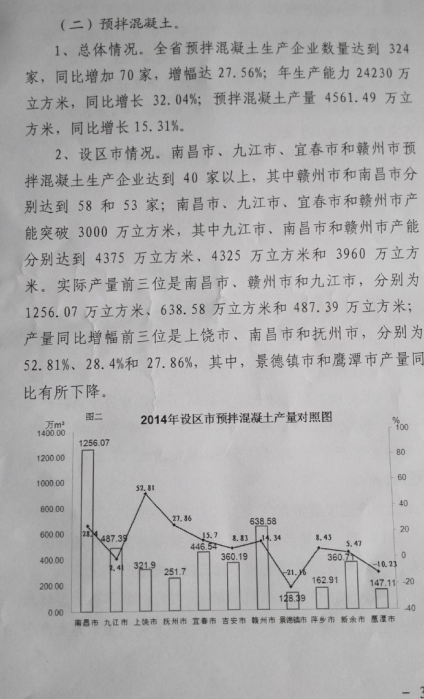 （二）预拌混凝土。
1、总体情况。全省预拌混凝土生产企业数量达到 324
家，同比增加 70 家，增幅达 27.56%；年生产能力 24230 万
立方米，同比增长 32.04%；预拌混凝土产量 4561.49 万立
方米，同比增长 15.31%。
2、设区市情况。南昌市、九江市、宜春市和赣州市预
拌混凝土生产企业达到 40 家以上，其中赣州市和南昌市分
别达到 58 和 53 家；南昌市、九江市、宜春市和赣州市产
能突破 3000 万立方米，其中九江市、南昌市和赣州市产能
分别达到 4375 万立方米、4325 万立方米和 3960 万立方
米。实际产量前三位是南昌市、赣州市和九江市，分别为
1256.07 万立方米、638.58 万立方米和 487.39 万立方米；
产量同比增幅前三位是上饶市、南昌市和抚州市，分别为
52.81%、28.4%和 27.86%，其中，景德镇市和鹰潭市产量同
比有所下降。
图二 2014年设区市预拌混凝土产量对照图
万m³ %
1400.00 100
1256.07
1200.00 80
1000.00 60
52.81
800.00 40
638.58
27.86
600.00 20
28.4 487.39 15.7 8.83 14.34 8.43 5.47
446.54
400.00 0
2.41 360.19 360.71 -10.23
321.9 251.7 -21.16
200.00 -20
162.91 147.11
128.39
0.00 -40
南昌市 九江市 上饶市 抚州市 宜春市 吉安市 赣州市 景德镇市 萍乡市 新余市 鹰潭市